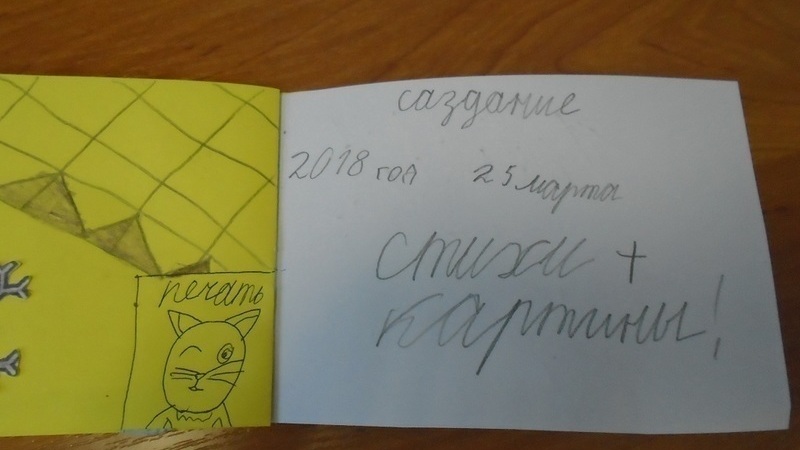 печать
саздание
2018 год 25 марта
стихи +
картины!